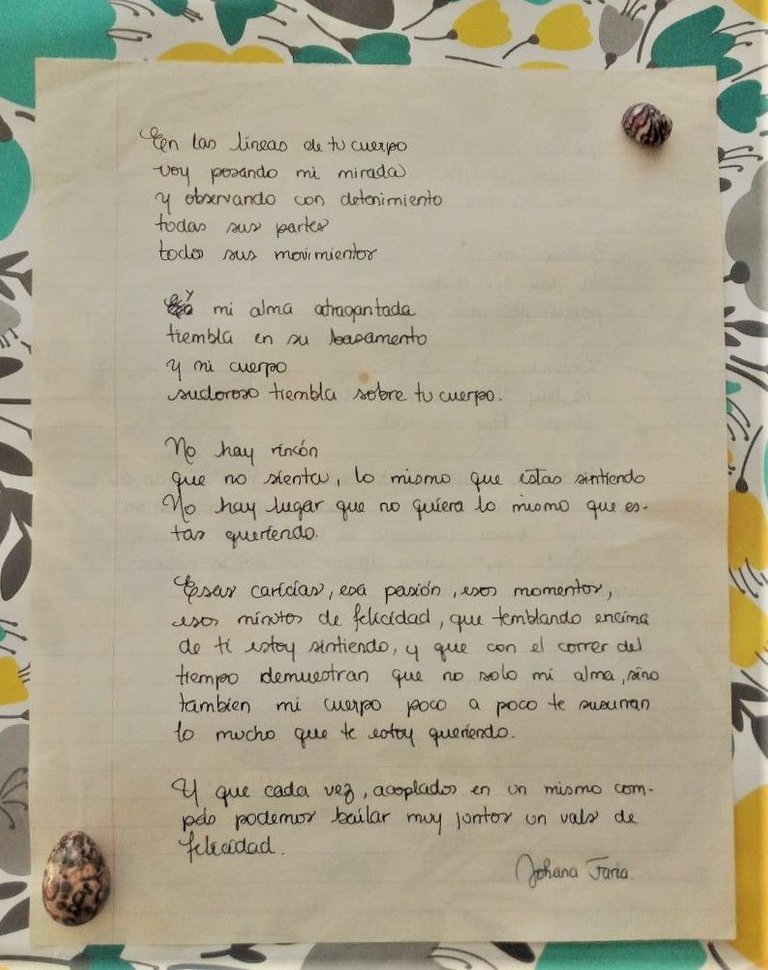 En las líneas de tu cuerpo
voy posando mi mirada
y observando con detenimiento
todas sus partes
todos sus movimientos
Y mi alma atragantada
tiembla en su basamento
y mi cuerpo
sudoroso tiembla sobre tu cuerpo.
No hay rincón
que no sienta, lo mismo que estas sintiendo
No hay lugar que no quiera lo mismo que es-
tas queriendo.
Esas caricias, esa pasión, esos momentos,
esos minutos de felicidad, que temblando encima
de ti estoy sintiendo, y que con el correr del
tiempo demuestran que no solo mi alma, sino
tambien mi cuerpo poco a poco te susurran
lo mucho que te estoy queriendo.
Y que cada vez, acoplados en un mismo com-
pás podemos bailar muy juntos un vals de
felicidad.
Johana Faria.